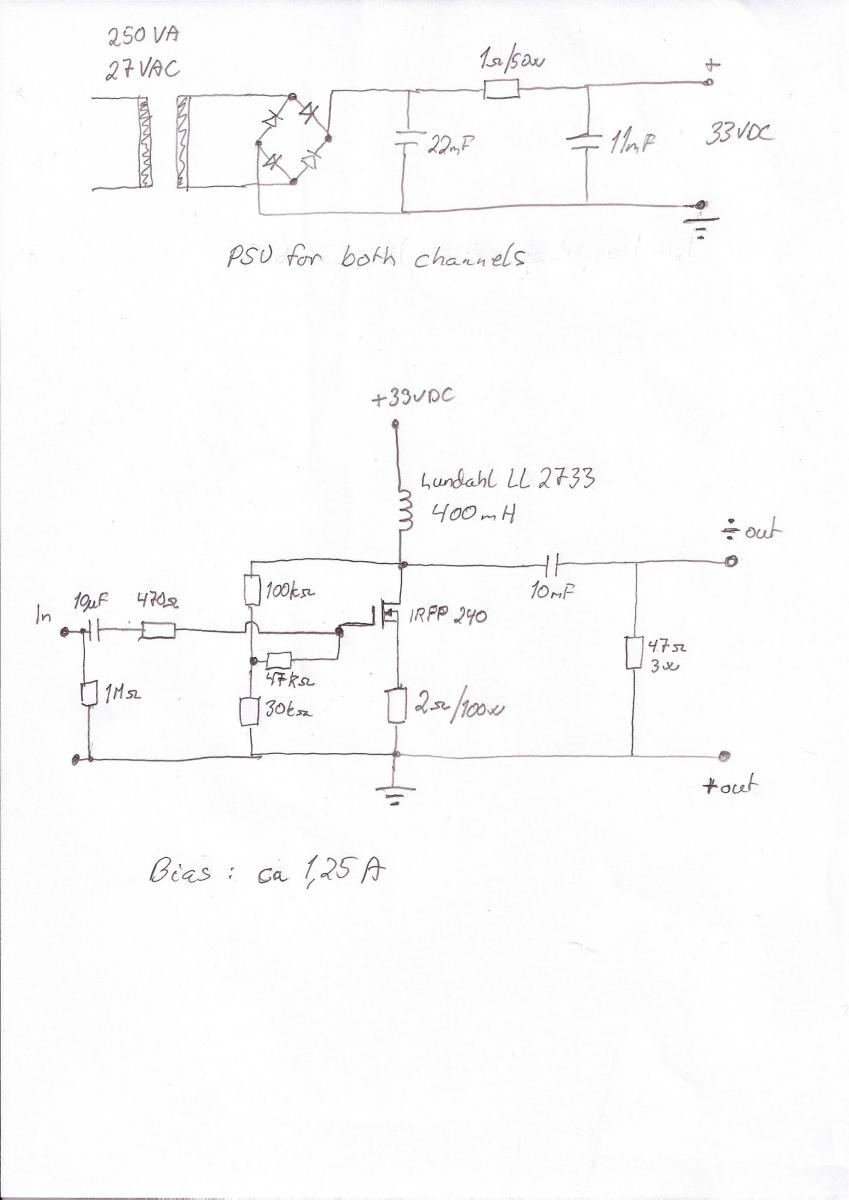 250VA
27VAC
1Ω/50W
+
22mF
11mF
33VDC
PSU for both channels
+33VDC
Lundahl LL 2733
400mH
÷ out
10mF
100kΩ
IRFP 240
In
10µF
470Ω
47Ω
3W
47kΩ
1MΩ
30kΩ
2Ω/100W
+out
Bias : ca 1,25 A